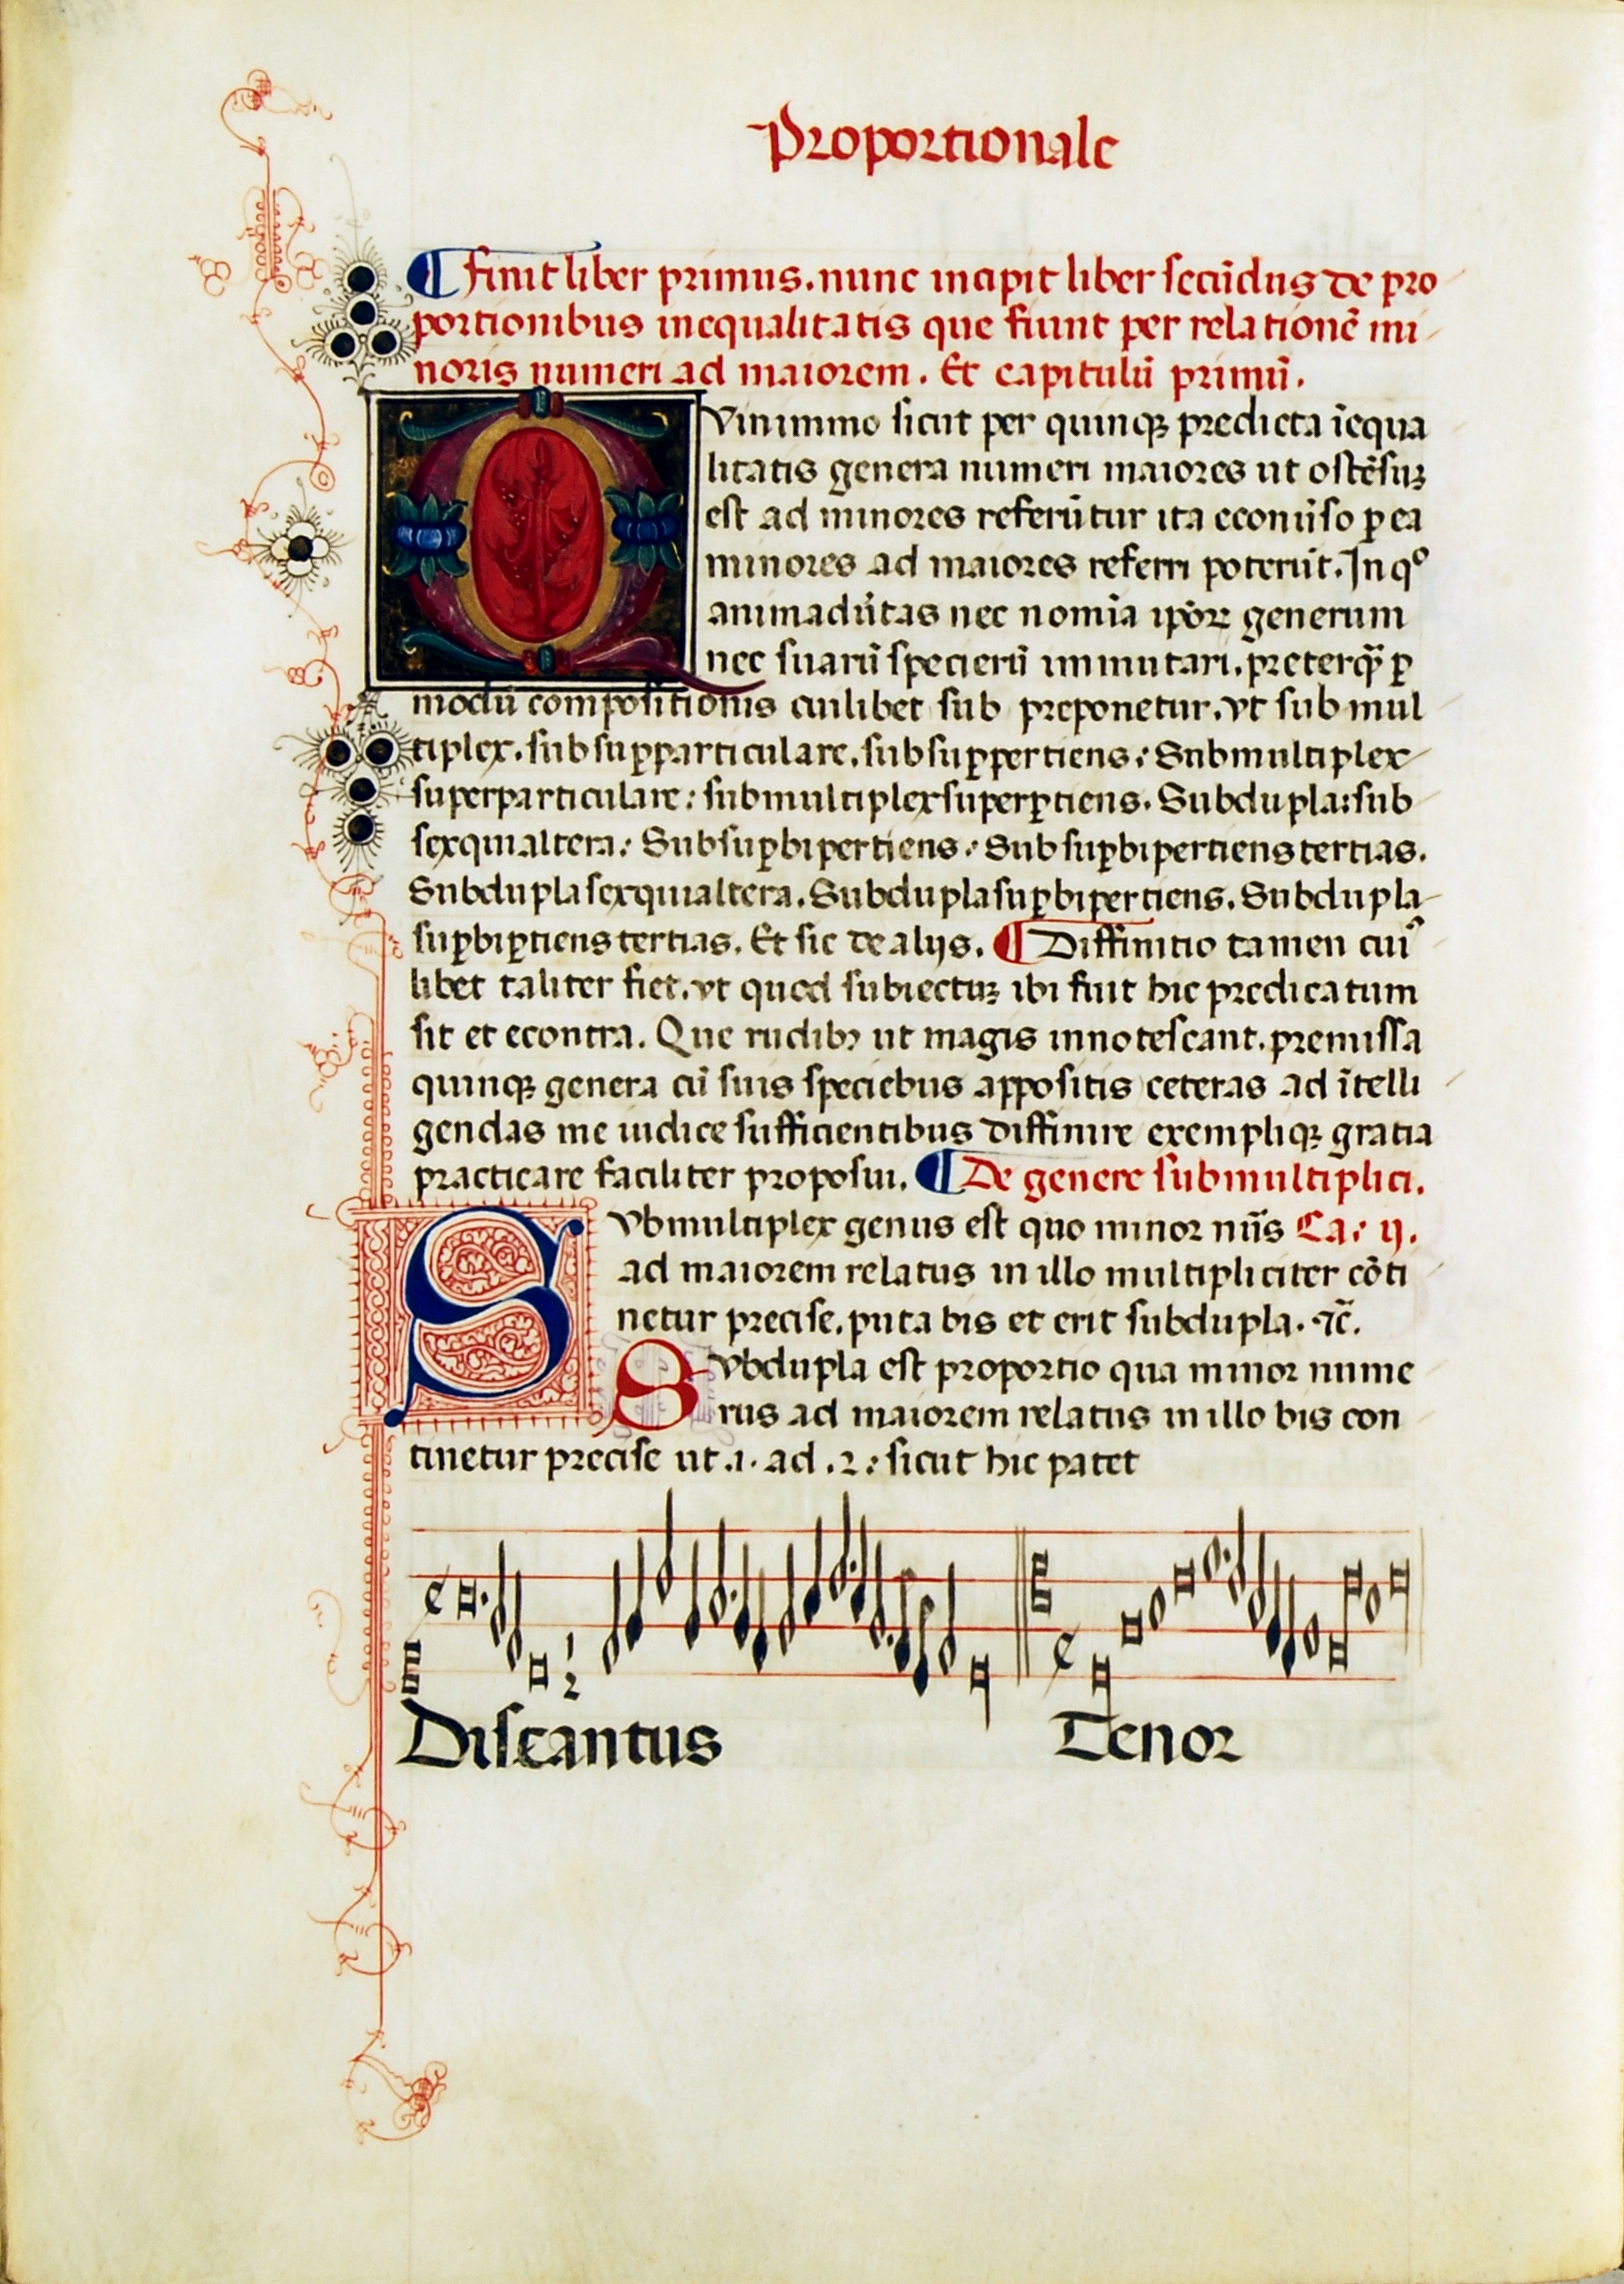 Proportionale
¶ Finit liber primus. nunc incipit liber secūdus de pro
portionibus inequalitatis que fiunt per relationē mi
noris numeri ad maiorem. Et capitulū primū.
Quinimmo sicut per quinqꝫ predicta īequa
litatis genera numeri maiores ut ostēsuꝫ
est ad minores referūtur ita econūso ꝑ ea
minores ad maiores referri poterūt. In qº
animadūtas nec nomīa ipōꝝ generum
nec suarū specierū immutari. preterqꝫ̄ ꝑ
modū compositionis cuilibet sub preponetur. vt sub mul
tiplex. sub suꝑparticulare. sub suꝑpertiens: Submultiplex
superparticulare: submultiplexsuperꝑtiens. Subdupla: sub
sexquialtera: Subsuꝑbipertiens: Subsuꝑbipertienstertias.
Subduplasexquialtera. Subduplasuꝑbipertiens. Subdupla
suꝑbiꝑtienstertias. Et sic de alijs. ¶ Diffinitio tamen cuiꝰ
libet taliter fiet. vt quod subiectuꝫ ibi fuit hic predicatum
sit et econtra. Que rudibꝫ ut magis innotescant. premissa
quinqꝫ genera cū suis speciebus appositis ceteras ad ītelli
gendas me iudice sufficientibus diffinire exempliqꝫ gratia
practicare faciliter proposui. ¶ De genere submultiplici.
Submultiplex genus est quo minor nūs Ca: ij.
ad maiorem relatus in illo multipliciter cōti
netur precise. puta bis et erit subdupla. ⁊c̄.
Subdupla est proportio qua minor nume
rus ad maiorem relatus in illo bis con
tinetur precise ut .1. ad .2: sicut hic patet
1
2
Discantus Tenor